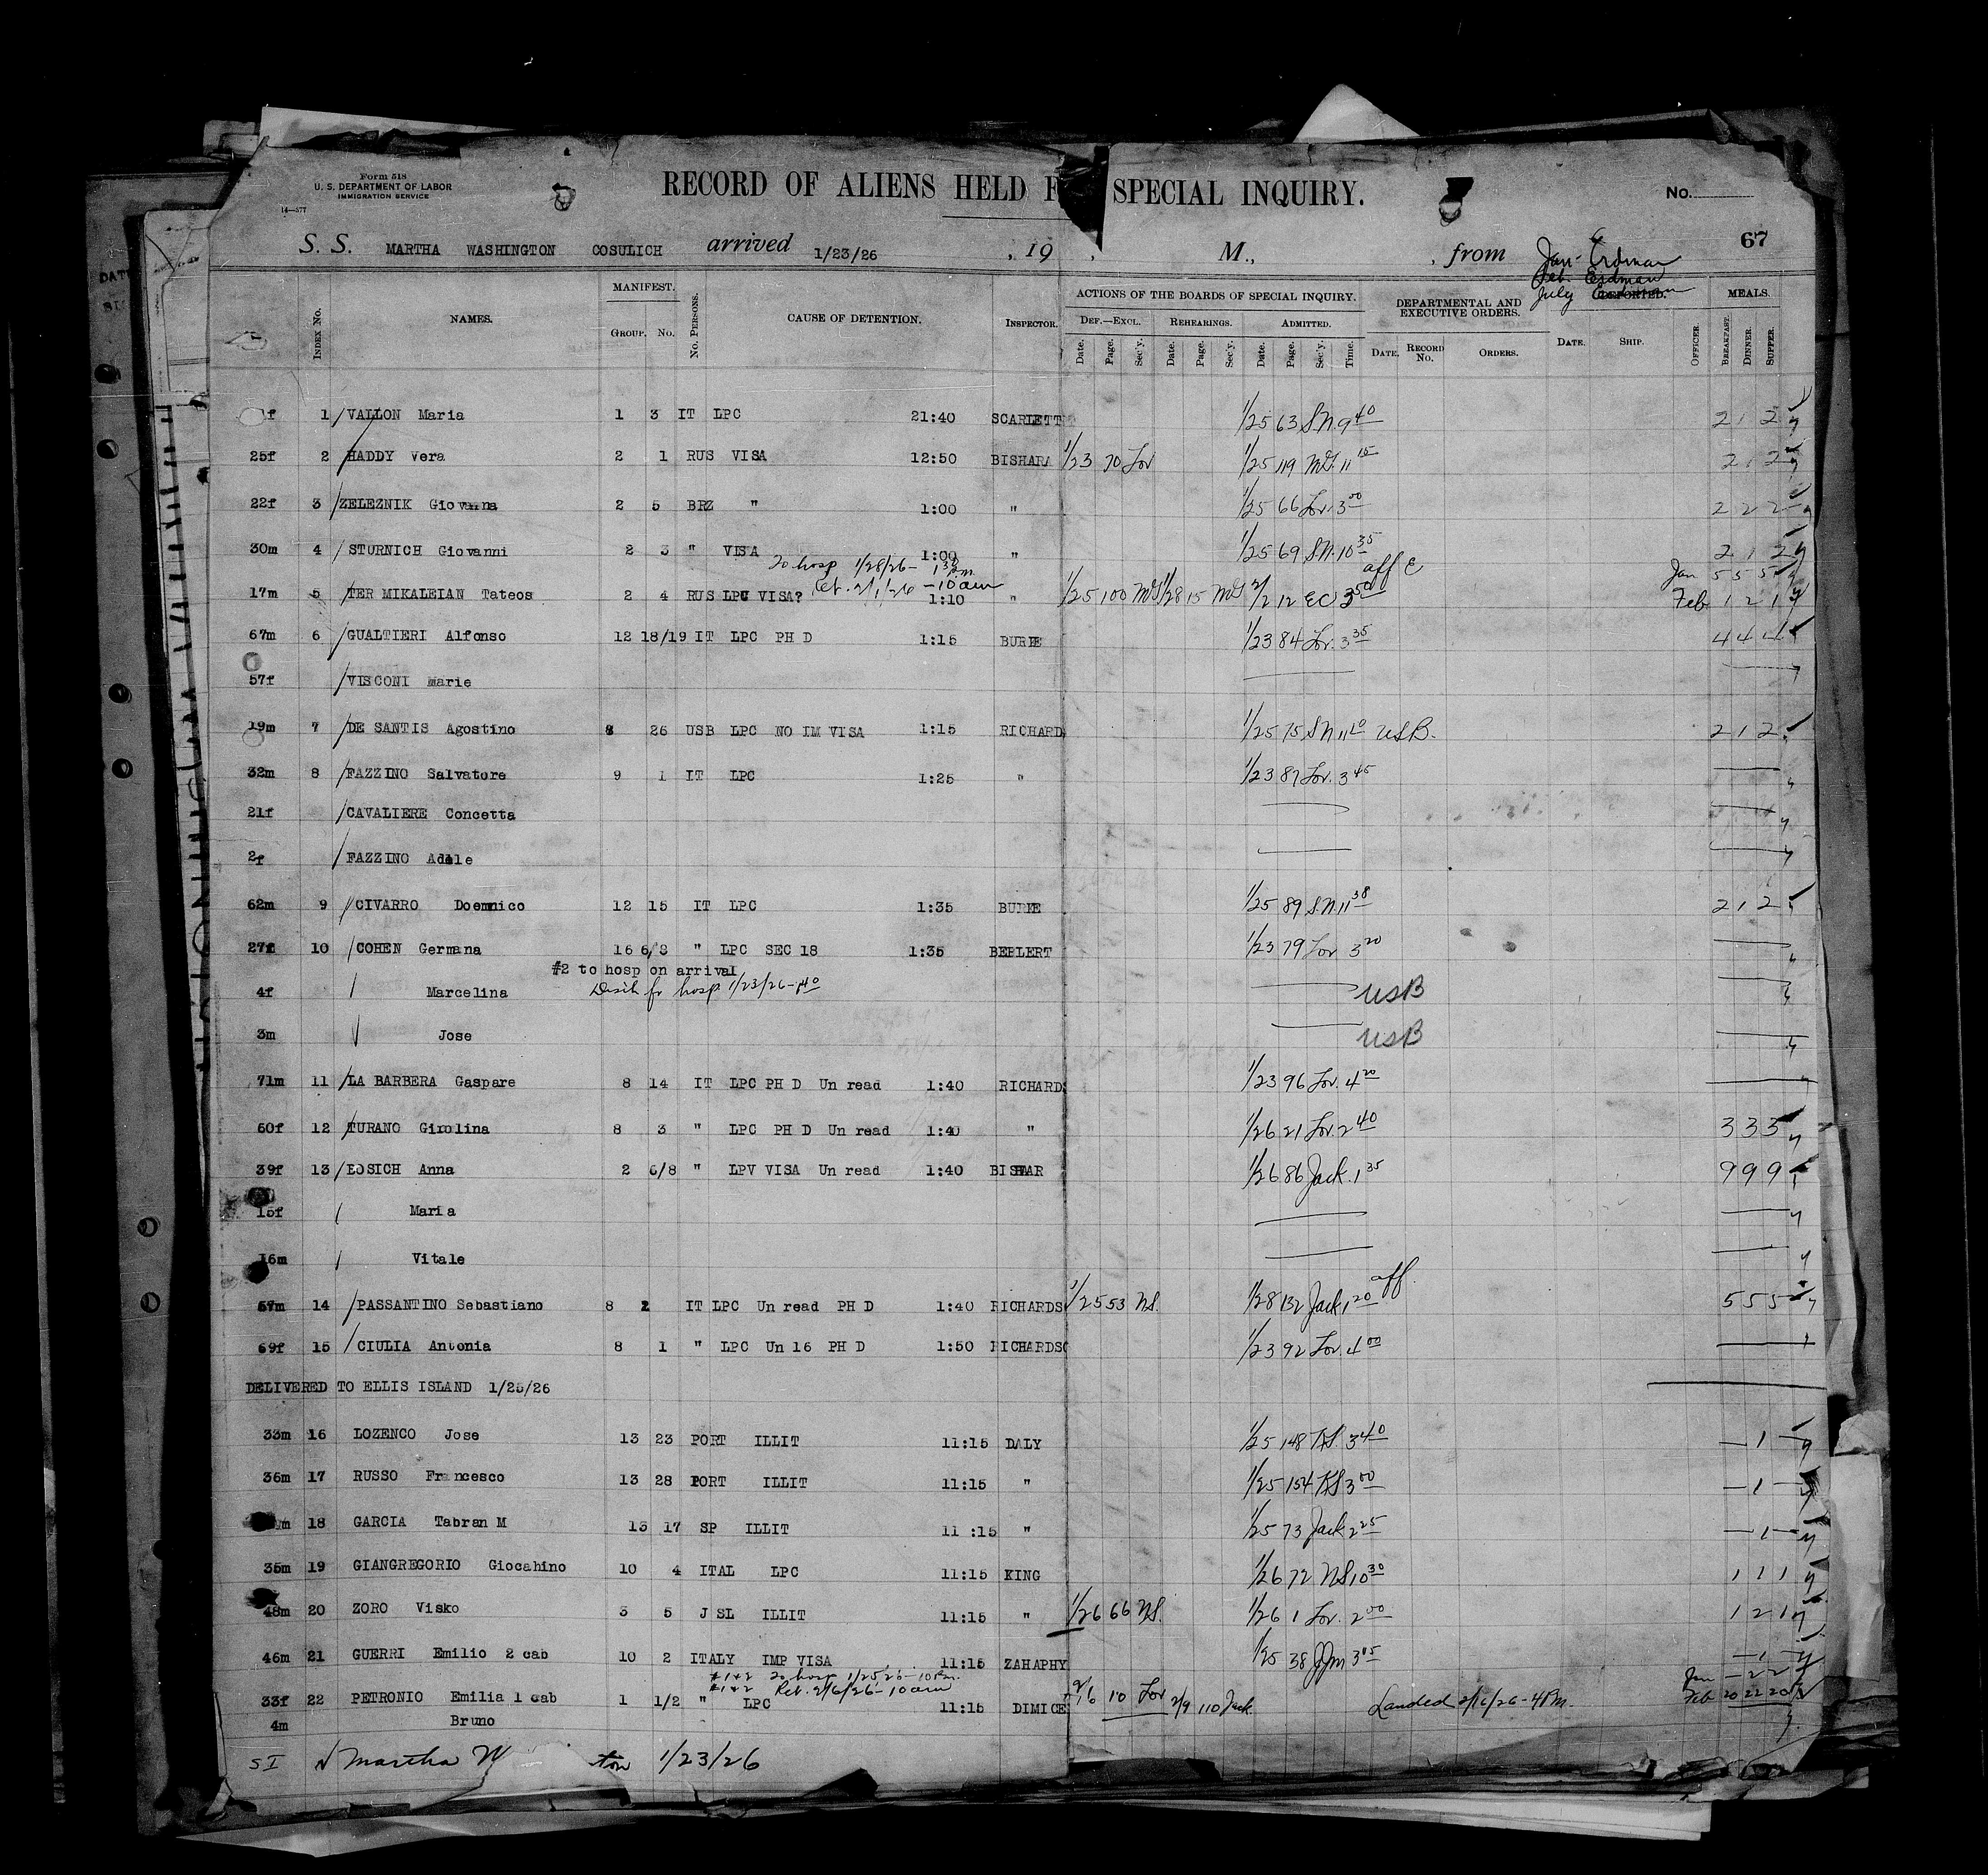 Form 518
U. S. DEPARTMENT OF LABOR
IMMIGRATION SERVICE
14—577
RECORD OF ALIENS HELD F SPECIAL INQUIRY.
No.
67
S. S. MARTHA WASHINGTON COSULICH arrived 1/23/26 , 19 , M., , from
Jan - Erdman
Feb. Erdman
July
INDEX No. NAMES. MANIFEST. GROUP. No. No. PERSONS. CAUSE OF DETENTION. INSPECTOR. ACTIONS OF THE BOARDS OF SPECIAL INQUIRY. DEPARTMENTAL AND EXECUTIVE ORDERS. DEPORTED. MEALS.
DEF.—EXCL. REHEARINGS. ADMITTED.
Date. Page. Sec'y. Date. Page. Sec'y. Date. Page. Sec'y. Time. DATE. RECORD No. ORDERS. DATE. SHIP. OFFICER. BREAKFAST. DINNER. SUPPER.
f 1 VALLON Maria 1 3 IT LPC 21:40 SCARLETT 1/25 63 S.N. 9 40 2 1 2
25f 2 HADDY Vera 2 1 RUS VISA 12:50 BISHARA 1/23 70 Lov 1/25 119 McG. 11 15 2 1 2
22f 3 ZELEZNIK Giovanna 2 5 BRZ " 1:00 " 1/25 66 Lov. 3 00 2 2 2
30m 4 STURNICH Giovanni 2 3 " VISA 1:00 " 1/25 69 S.N. 10 35 2 1 2
To hosp 1/28/26 - 1 P.m. aff E Jan 5 5 5
Ret. 2/1/26 - 10 am
17m 5 TER MIKALEIAN Tateos 2 4 RUS LPC VISA? 1:10 " 1/25 100 1/28 15 2/2 12 EC 3 50 Feb. 1 2 1
67m 6 GUALTIERI Alfonso 12 18/19 IT LPC PH D 1:15 BURKE 1/23 84 Lov. 3 35 4 4 4
57f VISCONI Marie
19m 7 DE SANTIS Agostino 8 26 USB LPC NO IM VISA 1:15 RICHARD 1/25 75 S N 11 10 USB. 2 1 2
32m 8 FAZZINO Salvatore 9 1 IT LPC 1:25 " 1/23 87 Lov. 3 45
21f CAVALIERE Concetta
2f FAZZINO Adele
62m 9 CIVARRO Doemnico 12 15 IT LPC 1:35 BURKE 1/25 89 S.N. 11 38 2 1 2
27f 10 COHEN Germana 16 6/8 " LPC SEC 18 1:35 BEPLERT 1/23 79 Lov 3 20
#2 to hosp on arrival
Disch fr hosp 1/23/26
4f Marcelina USB
3m Jose USB
71m 11 LA BARBERA Gaspare 8 14 IT LPC PH D Un read 1:40 RICHARDS 1/23 96 Lov. 4 20
60f 12 TURANO Girolina 8 3 " LPC PH D Un read 1:40 " 1/26 21 Lov. 2 40 3 3 3
39f 13 EOSICH Anna 2 6/8 " LPV VISA Un read 1:40 BISHAR 1/26 86 Jack. 1 35 9 9 9
15f Maria
16m Vitale
67m 14 PASSANTINO Sebastiano 8 2 IT LPC Un read PH D 1:40 RICHARDS 1/25 53 N.S. 1/28 132 Jack 1 20 aff. 5 5 5
69f 15 CIULIA Antonia 8 1 " LPC Un 16 PH D 1:50 RICHARDSO 1/23 92 Lov. 4 00
DELIVERED TO ELLIS ISLAND 1/25/26
33m 16 LOZENCO Jose 13 23 PORT ILLIT 11:15 DALY 1/25 148 K.S. 3 40 — 1 —
36m 17 RUSSO Francesco 13 28 PORT ILLIT 11:15 " 1/25 154 KS 3 00 — 1 —
m 18 GARCIA Tabran M 13 17 SP ILLIT 11 :15 " 1/25 73 Jack 2 25 — 1 —
35m 19 GIANGREGORIO Giocahino 10 4 ITAL LPC 11:15 KING 1/26 72 NS 10 30 1 1 1
48m 20 ZORO Visko 3 5 J SL ILLIT 11:15 " 1/26 66 N.S. 1/26 1 Lov. 2 00 1 2 1
46m 21 GUERRI Emilio 2 cab 10 2 ITALY IMP VISA 11:15 ZAHAPHY 1/25 38 3 05 — 1 —
#1+2 To hosp 1/25/26 - 10 P.m. Jan — 2 2
#1+2 Ret. 2/6/26 - 10 am
33f 22 PETRONIO Emilia 1 cab 1 1/2 " LPC 11:15 DIMICE 2/6 10 Lov 2/9 110 Jack Landed 2/16/26 - 4 P.m. Feb 20 22 20
4m Bruno
S I Martha W ton 1/23/26